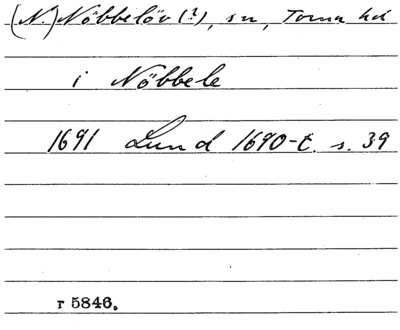 (N.) Nöbbelöv (?), sn, Torna hd
i Nöbbele
1691 Lund 1690-t. s. 39
r 5846.